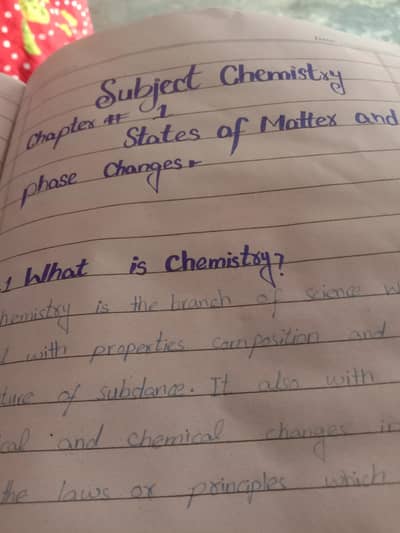 Subject Chemistry
Chapter # 1
States of Matter and
phase Changes
1 What is Chemistry?
hemistry is the branch of science w
with properties composition and
ture of subdance. It also with
cal and chemical changes in
the laws or principles which